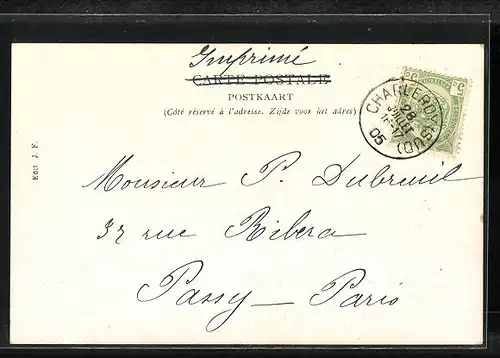 Imprimé
CARTE POSTALE
POSTKAART
(Côté réservé à l'adresse. Zijde voor het adres)
CHARLEROY (SUD)
28
JUILLET
16-17
05
5
5
Edit J. F.
Monsieur P. Dubreuil
32 rue Ribera
Passy — Paris